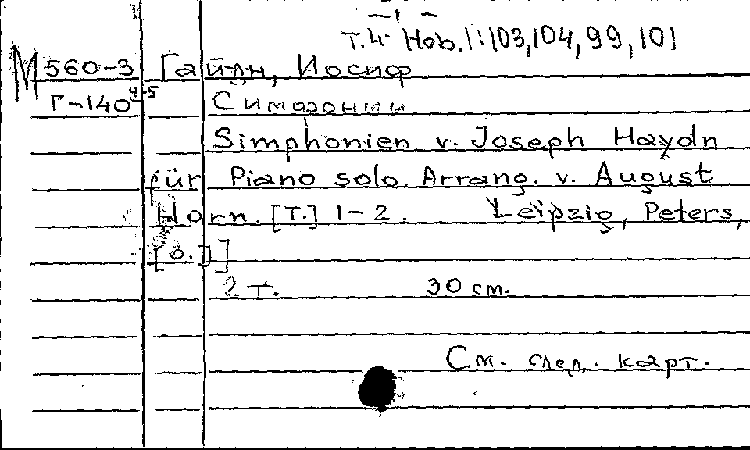 Т.4 Hob.I:103,104,99,101
М560-3 Гайдн, Иосиф
Г-140 4-5 Симфонии
Simphonien v. Joseph Haydn
für Piano solo. Arrang. v. August
Horn. [Т.] 1-2. Leipzig, Peters,
[б.]
2 т. 30 см.
См. след. карт.